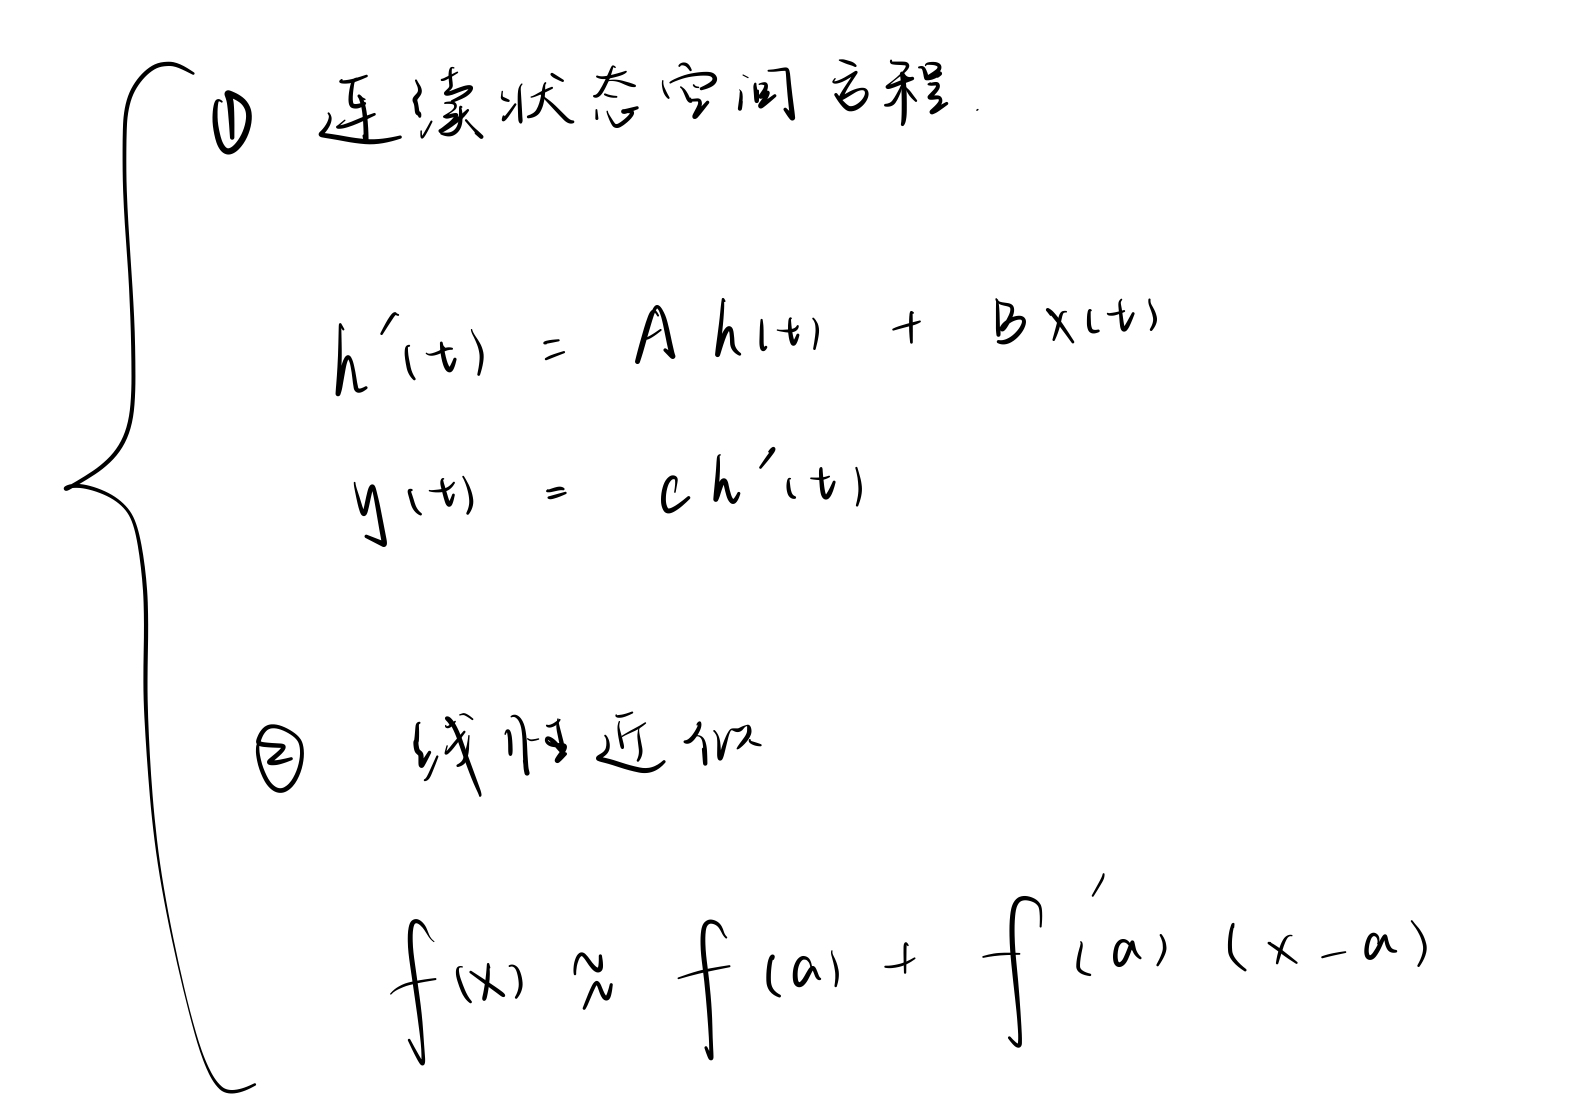 ① 连续状态空间方程.
h′(t) = A h(t) + B x(t)
y(t) = c h′(t)
② 线性近似
f(x) ≈ f(a) + f′(a) (x - a)